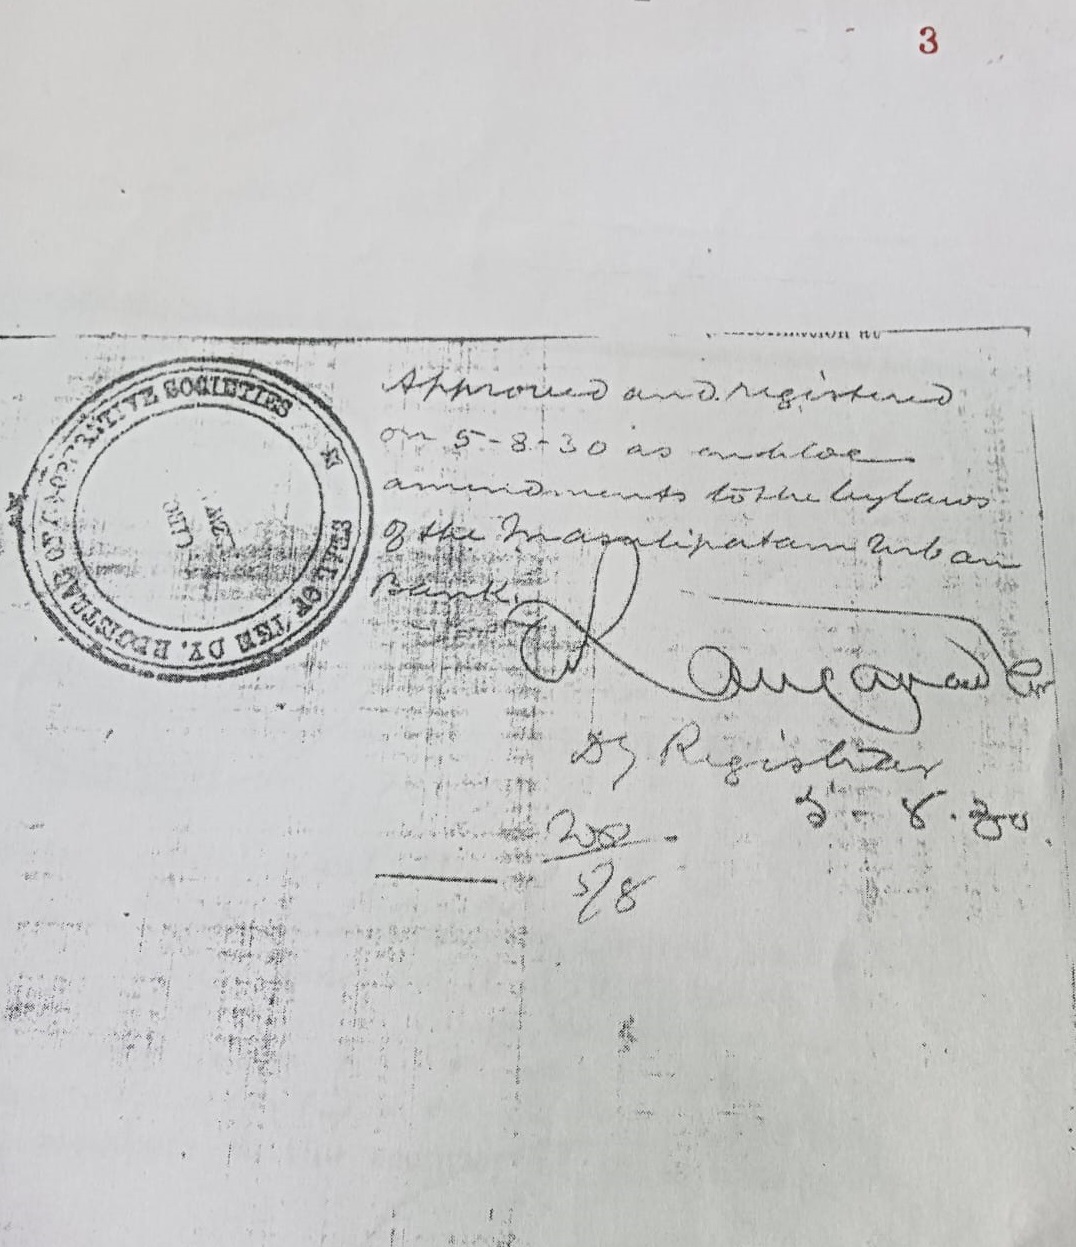 3
Approved and registered
on 5-8-30 as
amendments to the bylaws
of the Masulipatam Urban
Bank.
Dy Registrar
5-8-30
5/8
SEAL OF THE DY. REGISTRAR OF CO-OPERATIVE SOCIETIES